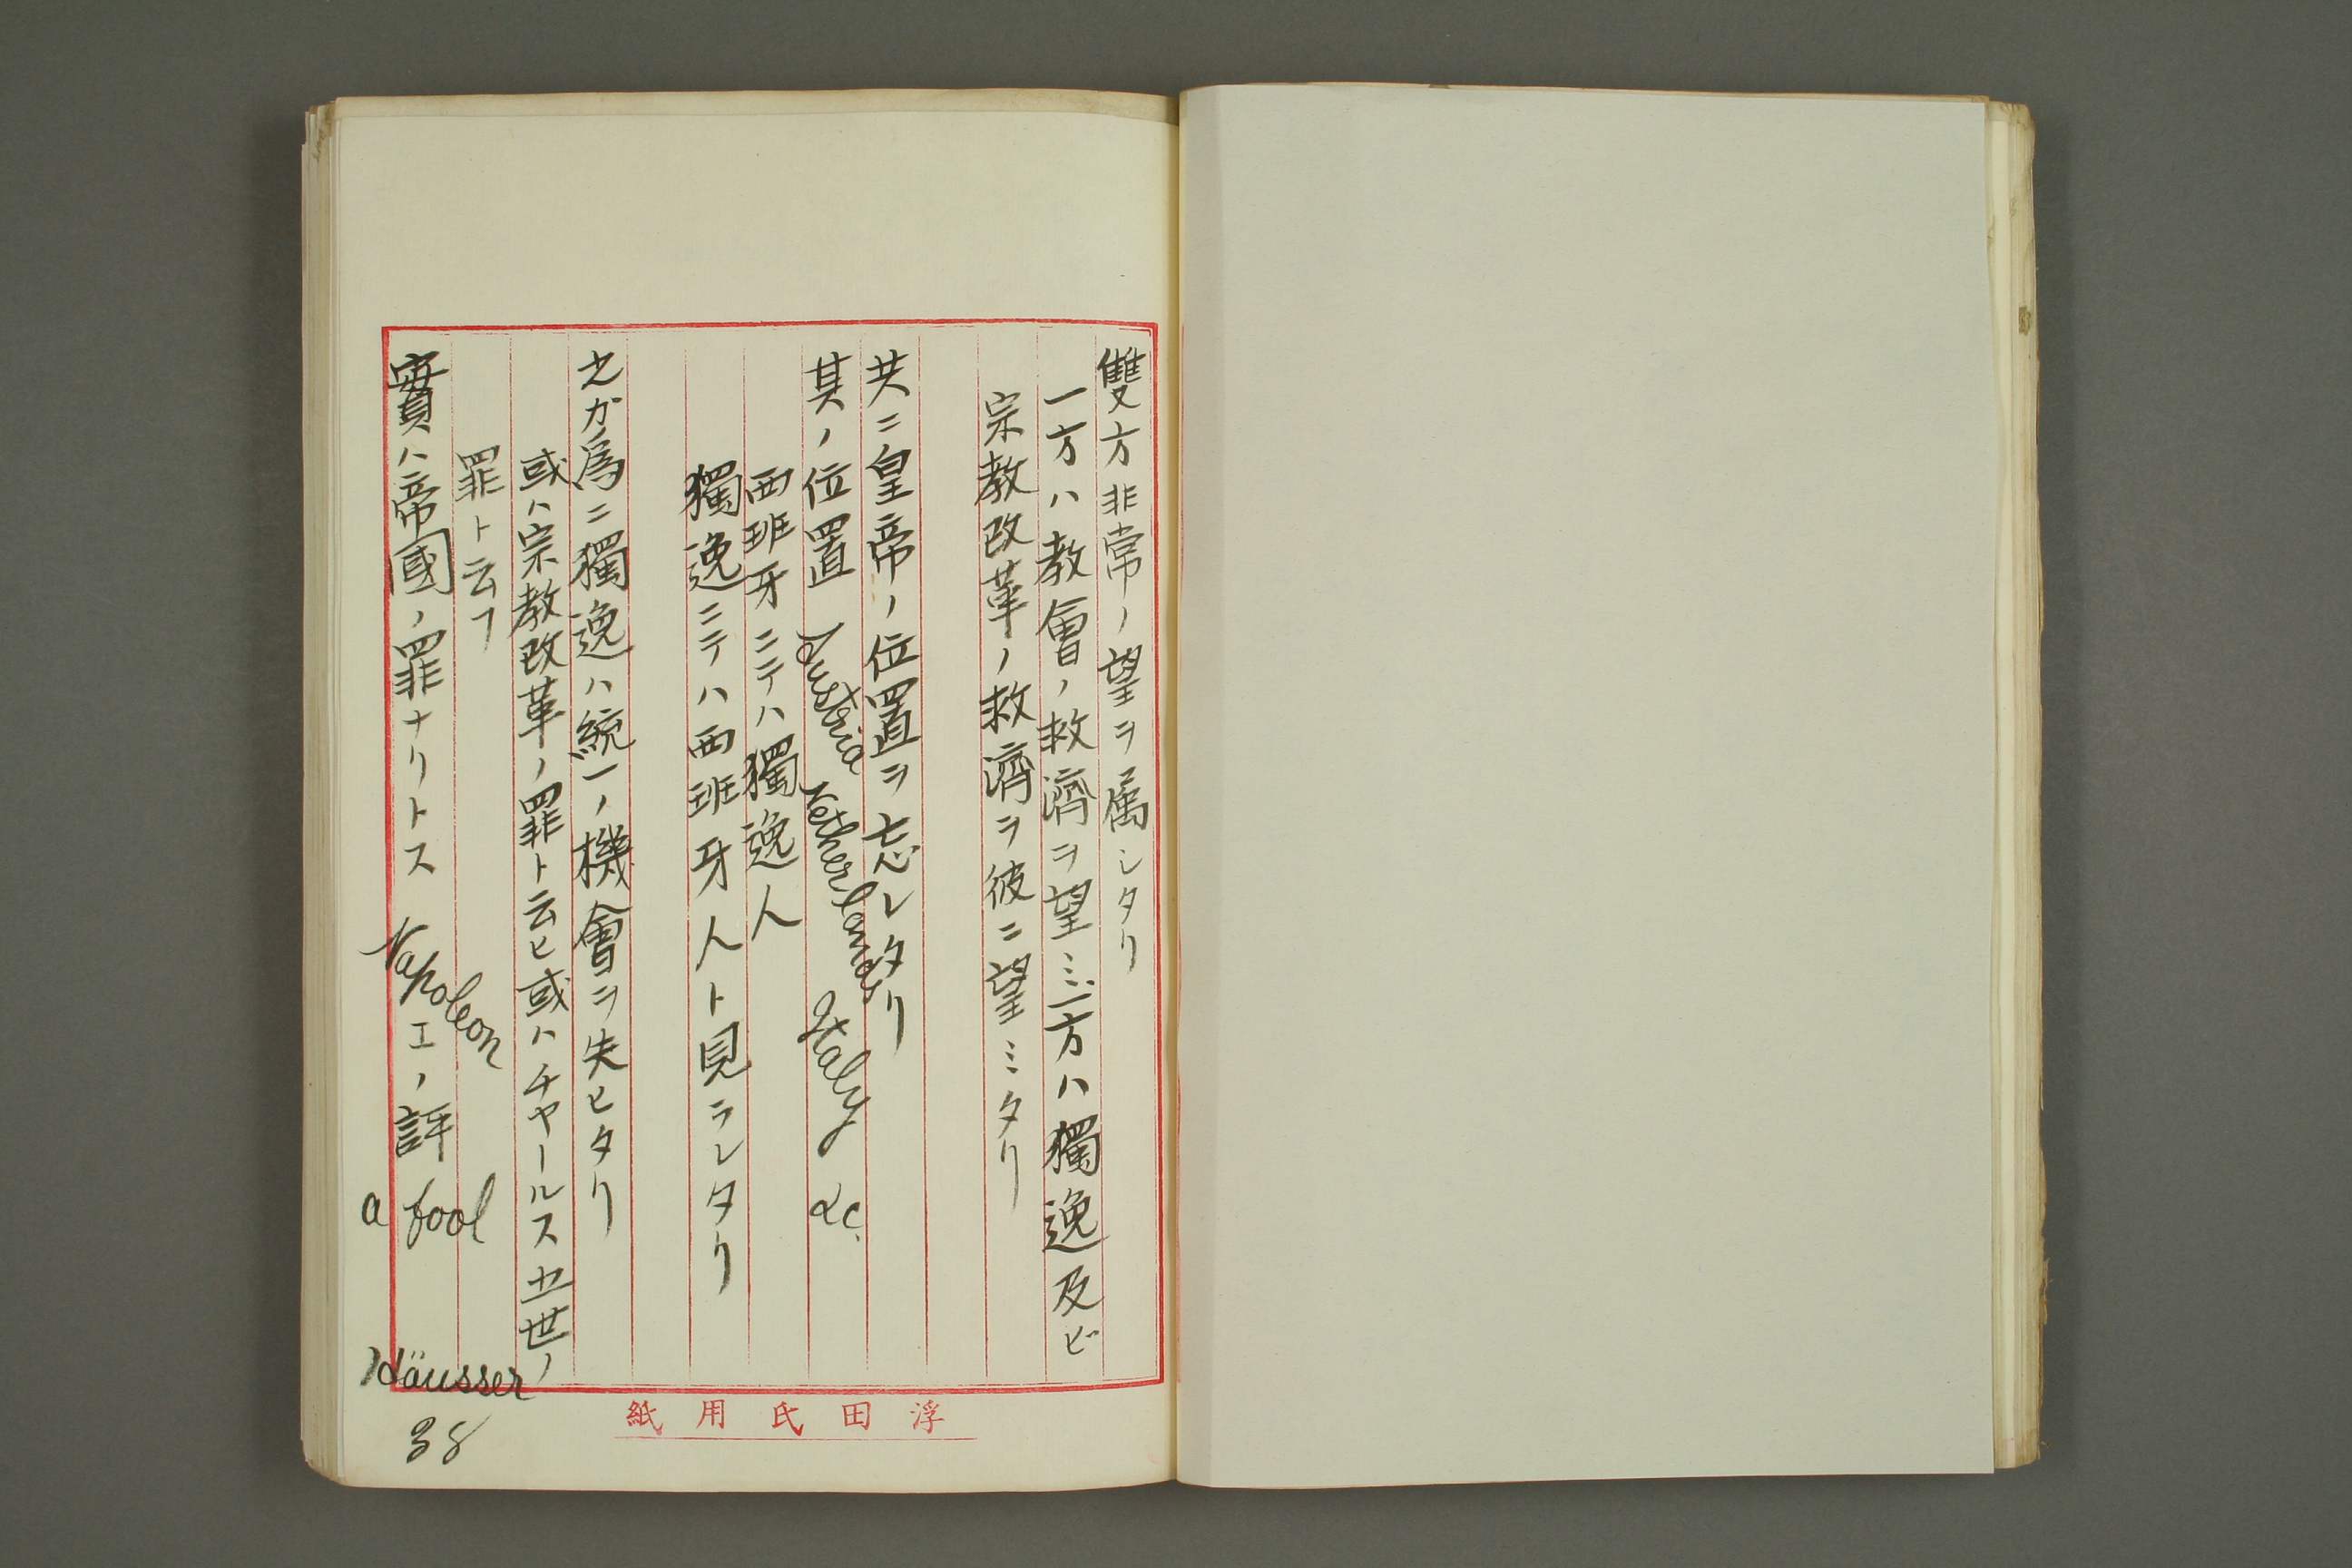 雙方非常ノ望ヲ属シタリ
一方ハ教會ノ救濟ヲ望ミ一方ハ獨逸及ビ
宗教改革ノ救濟ヲ彼ニ望ミタリ
共ニ皇帝ノ位置ヲ忘レタリ
其ノ位置 Austria Netherlands Italy &c.
西班牙ニテハ獨逸人
獨逸ニテハ西班牙人ト見ラレタリ
之カ爲ニ獨逸ハ統一ノ機會ヲ失ヒタリ
或ハ宗教改革ノ罪ト云ヒ或ハチヤールス五世ノ
罪ト云フ
實ハ帝國ノ罪ナリトス Napoleon I ノ評 a fool
Häusser
38
浮田氏用紙